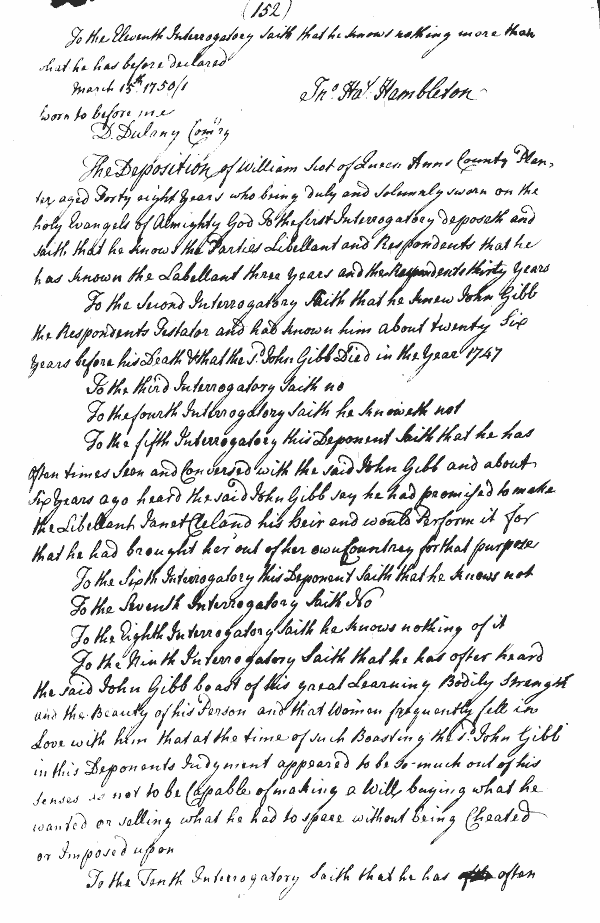 (152)
To the Eleventh Interrogatory saith that he knows nothing more than
what he has before declared
March 15th. 1750/1
Jno. Hay. Hambleton
worn to before me
D. Dulany Comry
The Deposition of William Scot of Queen Anns County Plan-
ter aged Forty eight Years who being duly and solemnly sworn on the
holy Evangels of Almighty God To the first Interrogatory deposeth and
saith that he knows the Parties Libellant and Respondents that he
has known the Labellant three Years and the Respondents thirty Years
To the Second Interrogatory Saith that he knew John Gibb
the Respondents Testator and had known him about twenty Six
Years before his Death & that the sd. John Gibb Died in the Year 1747
To the third Interrogatory Saith no
To the fourth Interrogatory Saith he knoweth not
To the fifth Interrogatory this Deponent Saith that he has
often times Seen and Conversed with the said John Gibb and about
Six Years ago heard the said John Gibb say he had promised to make
the Libellant Janet Cleland his heir and would Perform it for
that he had brought her out of her own Countrey for that purpose
To the Sixth Interrogatory this Deponent Saith that he knows not
To the Seventh Interrogatory Saith No
To the Eighth Interrogatory Saith he knows nothing of it
To the Ninth Interrogatory Saith that he has often heard
the said John Gibb boast of his great Learning Bodily Strength
and the Beauty of his Person and that Women frequently fell in
Love with him that at the time of such Boasting the sd. John Gibb
in this Deponents Judgment appeared to be so much out of his
senses as not to be Capable of making a Will, buying what he
wanted or selling what he had to spare without being Cheated
or Imposed upon
To the Tenth Interrogatory Saith that he has often